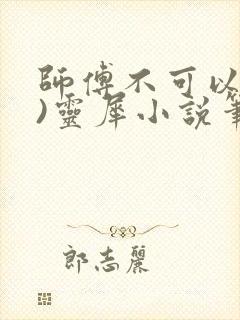 師傅不可以
)靈犀小說筆
郎志麗